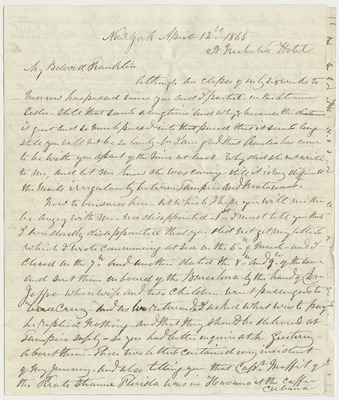 New York April 12th 1865
St Nicholas Hotel
My Beloved Franklin
Although an elapse of only six weeks to
morrow has passed since you and I parted on the Steamer
still that seems a long time and why? because the distance
is great and so much passed into that period that it seems long
still you will not be so lonely - for I am glad that Amelia has come
to be with you a part of the time at least. Why did she not write
to me, and let me know she was coming - still it is very difficult
the mails irregularly between Tampico and Matamoros.
Now to business here - at which I hope you will neither
be angry with me nor disappointed - for I must tell you that
I am sadly disappointed that you did not get my letter
which I wrote commencing at sea on the 5th of March - and I
closed on the 7th and another dated the 8th and 9th of the same
and sent them on board of the Barcelona by the hand of Dr
whose wife and two children went passengers to
Vera Cruz and as he returned I asked what was to pay
he replied Nothing - and that they should be delivered at
Tampico safely - so you had better inquire of the
about them - These two letters contained every incident
of my journey - and also telling you that Capt. Maffit of
the Pirate Steamer Florida was in Havana at the
Cubana